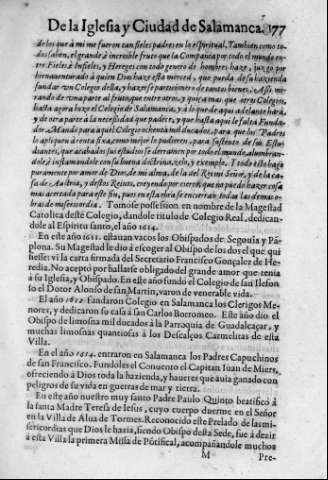 De la Iglesia y Ciudad de Salamanca. 177
de los que à mi me fueron tan fieles padres en lo espiritual. Tambien como to-
dos saben, el grande è increible fruto que la Compañia por todo el mundo en-
tre Fieles è Infieles, y Hereges con todo genero de hombres haze, juzgo por
bienauenturado à quien Dios haze esta merced, que pueda de su hazienda
fundar vn Colegio della, y hazerse participante de tantos bienes. Assi, mi-
rando de vna parte al fruto, que entre otros, y quiçà mas que otros Colegios,
hasta agora haze el Colegio de Salamanca, y à lo que de aqui adelante harà,
y de otra parte à la necessidad que padece, y que hasta aqui le falta Funda-
dor. Mando para aquel Colegio ochenta mil ducados, para que los Padres
lo apliquen à renta fixa, como mejor les pareciere, para sustento de sus Estu-
diantes, que acabados sus estudios se derramen por todo el mundo, alumbran-
dole, è instruyendole con su buena doctrina, zelo, y exemplo. Y todo esto hago
puramente por amor de Dios, de mi alma, de la del Rey mi Señor, y de la ca-
sa de Austria, y destos Reinos, creyendo por cierto, que no puedo hazer cosa
mas acertada para este fin, pues en esta obra se encierran todas las demas o-
bras de misericordia. Tomose possession en nombre de la Magestad
Catolica deste Colegio, dandole titulo de Colegio Real, dedican-
dole al Espiritu santo, el año 1614.
En este año 1611. estauan vacos los Obispados de Segouia y Pã-
plona. Su Magestad le dio à escoger al Obispo de los dos el que qui
siesse: vi la carta firmada del Secretario Francisco Gonçalez de He-
redia. No acepto por hallarse obligado del grande amor que tenia
à su Iglesia, y Obispado. En este año fundò el Colegio de san Ilefon
so el Doctor Alonso de san Martin, varon de venerable vida.
El año 1612. fundaron Colegio en Salamanca los Clerigos Me-
nores, y dedicaron su casa à san Carlos Borromeo. Este año dio el
Obispo de limosna mil ducados à la Parroquia de Guadalcaçar, y
muchas limosnas quantiosas à los Descalços Carmelitas de esta
Villa.
En el año 1614. entraron en Salamanca los Padres Capuchinos
de san Francisco. Fundoles el Conuento el Capitan Iuan de Miers,
ofreciendo à Dios toda la hazienda, y haueres que auia ganado con
peligros de su vida en guerras de mar y tierra.
En este año nuestro muy santo Padre Paulo Quinto beatificò à
la santa Madre Teresa de Iesus, cuyo cuerpo duerme en el Señor
en la Villa de Alua de Tormes. Reconocido este Prelado de las mi-
sericordias que Dios le haria, siendo Obispo desta Sede, fue à dezir
à esta Villa la primera Missa de Põtifical, acompañandole muchos
M Pre-